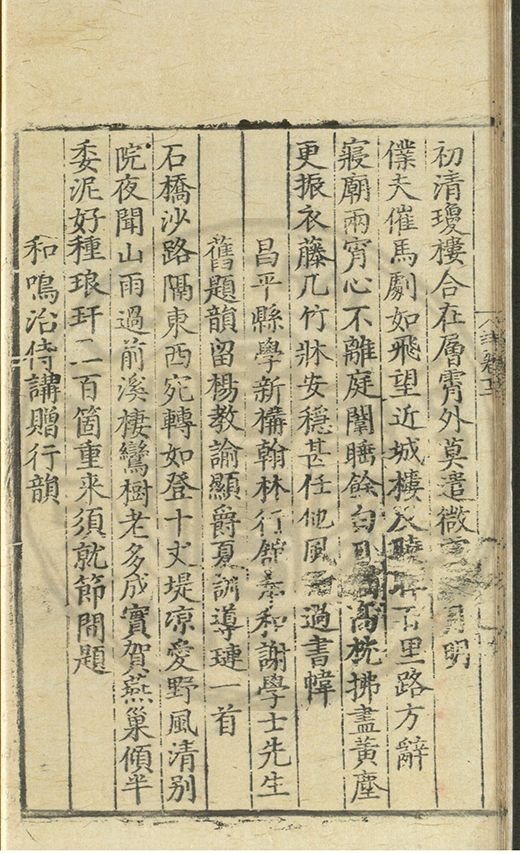 初清瓊樓合在層霄外莫遣微月明
僕夫催馬劇如飛望近城樓曉百里路方辭
寢廟兩宵心不離庭闈睡餘白日高枕拂盡黃塵
更振衣藤几竹牀安穩甚任他風過書幃
昌平縣學新搆翰林行館奉和謝學士先生
舊題韻留楊教諭顯爵夏訓導璉一首
石橋沙路隔東西宛轉如登十丈堤凉愛野風清別
院夜聞山雨過前溪棲鸞樹老多成實賀燕巢傾半
委泥好種琅玕二百箇重来須就節間題
和鳴治侍講贈行韻